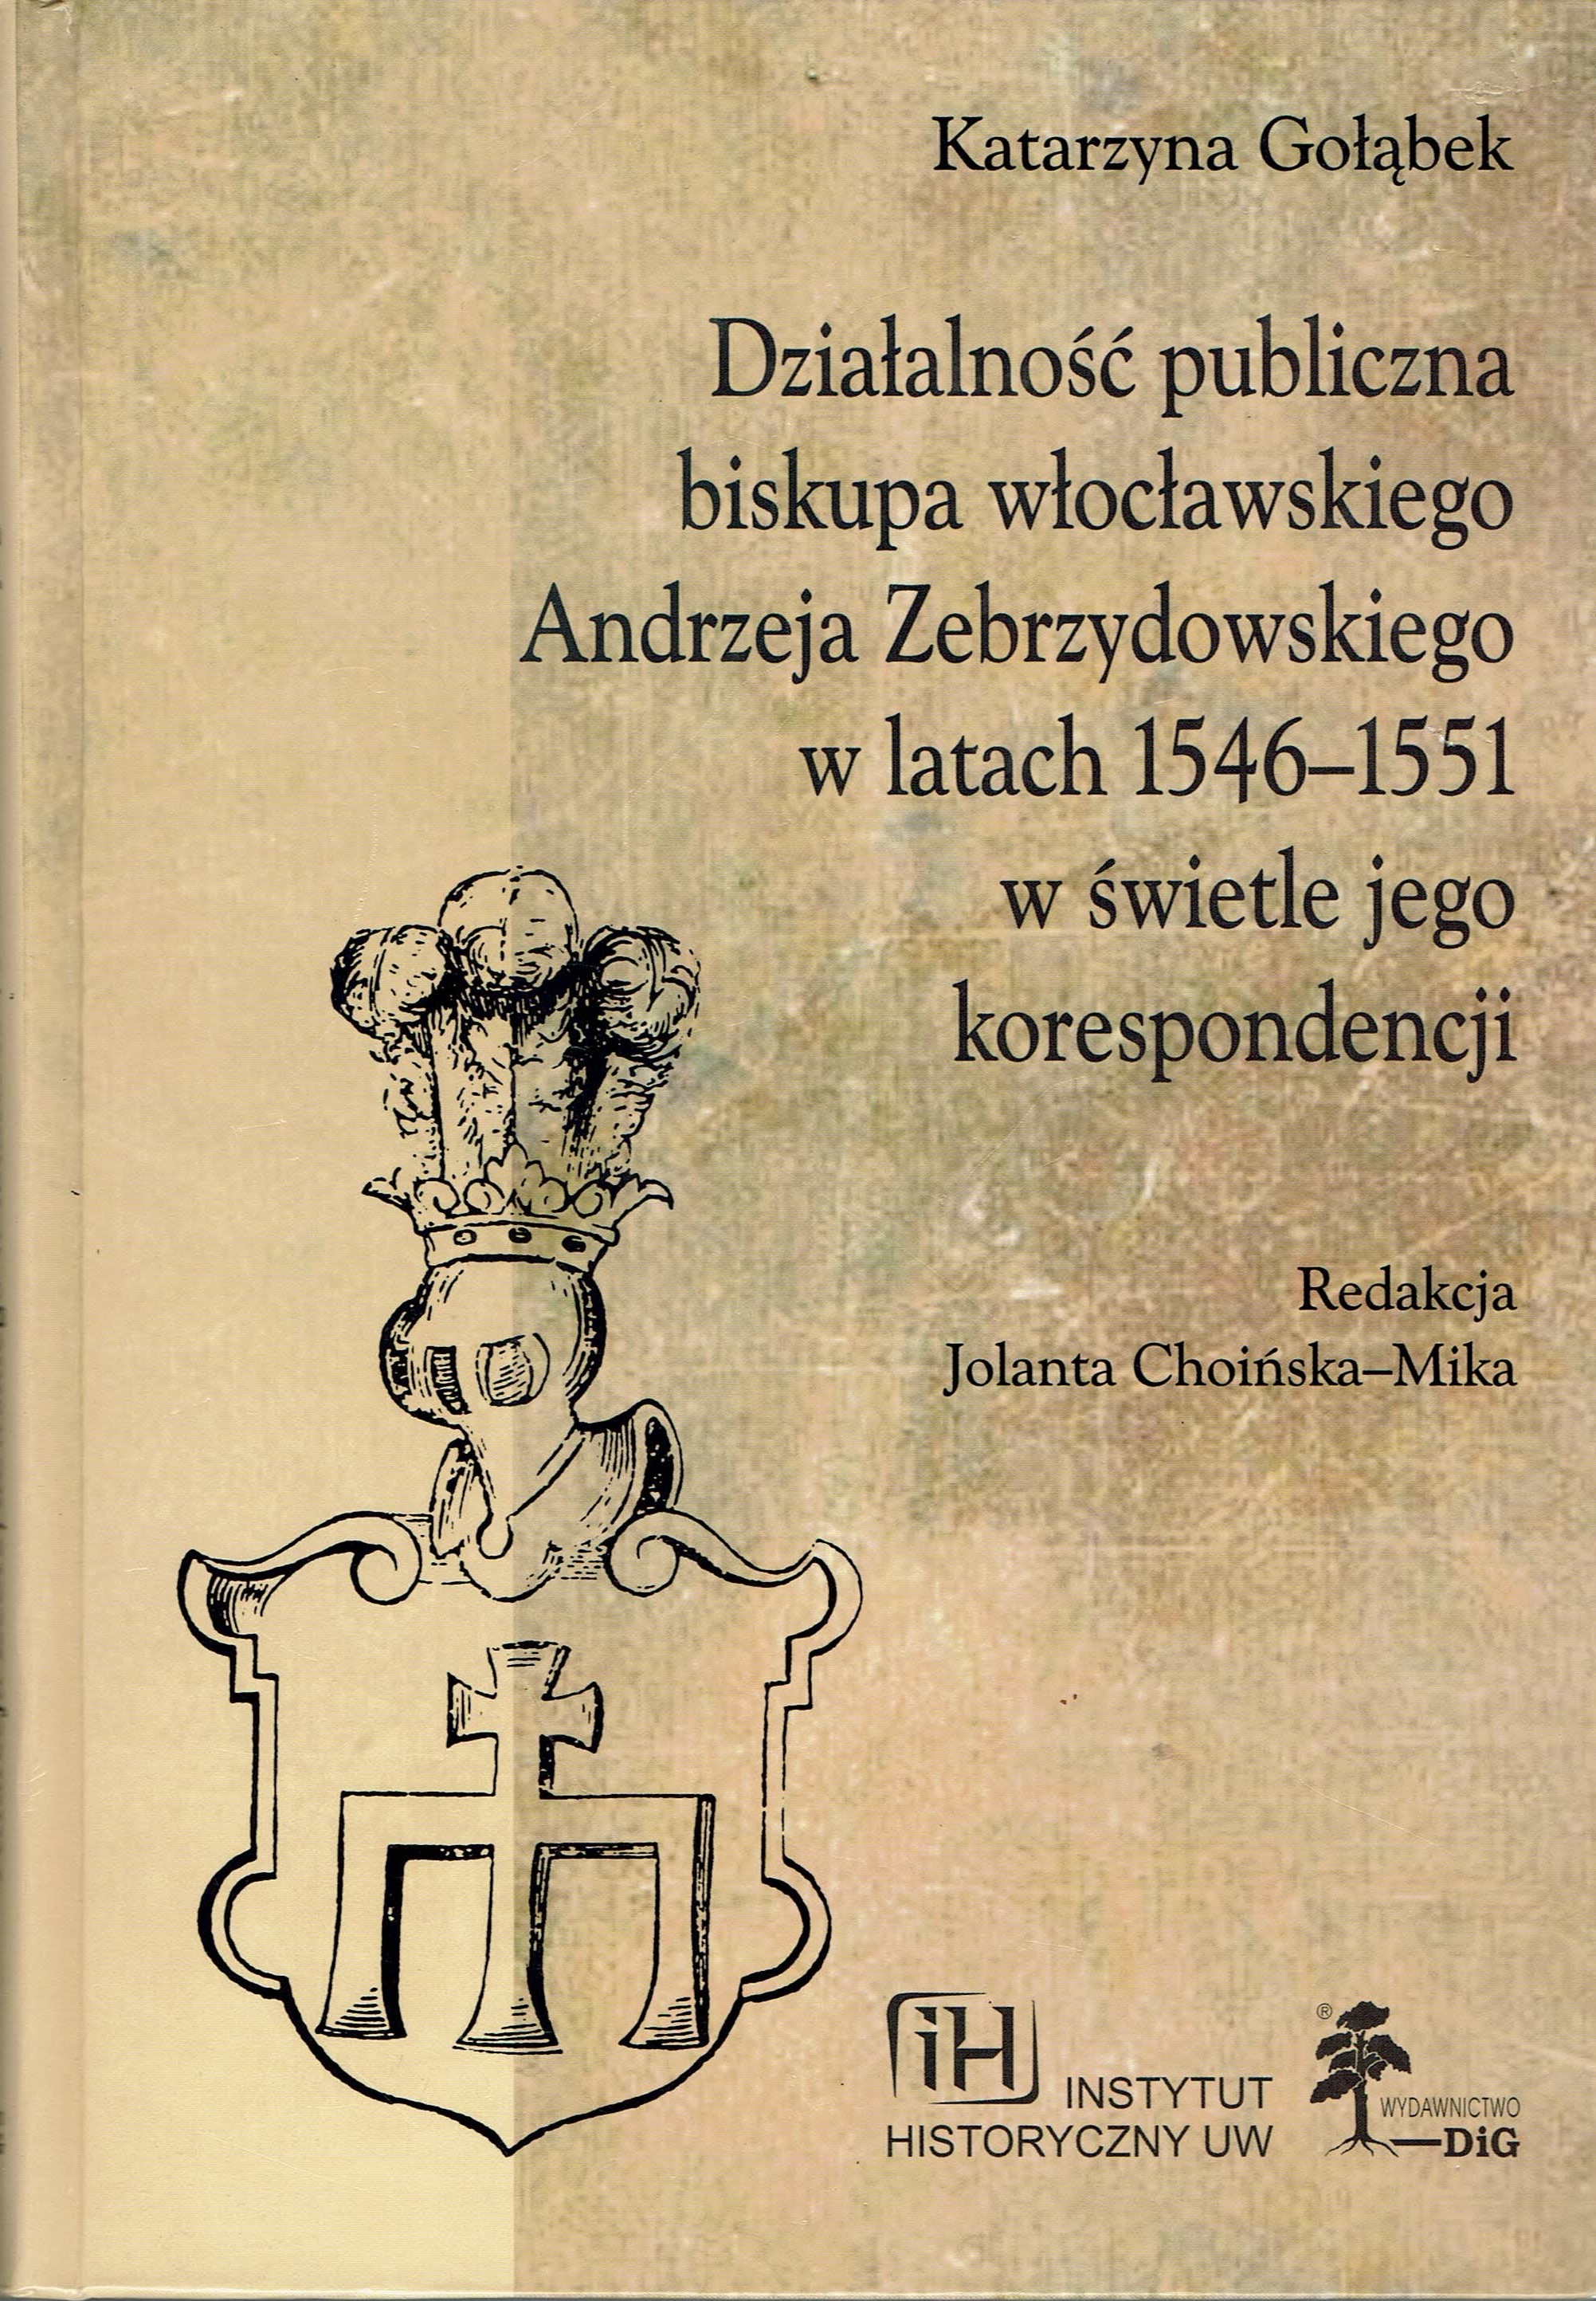 Katarzyna Gołąbek
Działalność publiczna
biskupa włocławskiego
Andrzeja Zebrzydowskiego
w latach 1546–1551
w świetle jego
korespondencji
Redakcja
Jolanta Choińska–Mika
iH INSTYTUT
HISTORYCZNY UW
®
WYDAWNICTWO
DiG